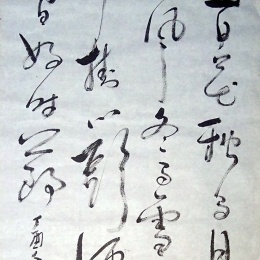 百花秋有月
風冬有雪
挂心頭便
間好時節
丁酉